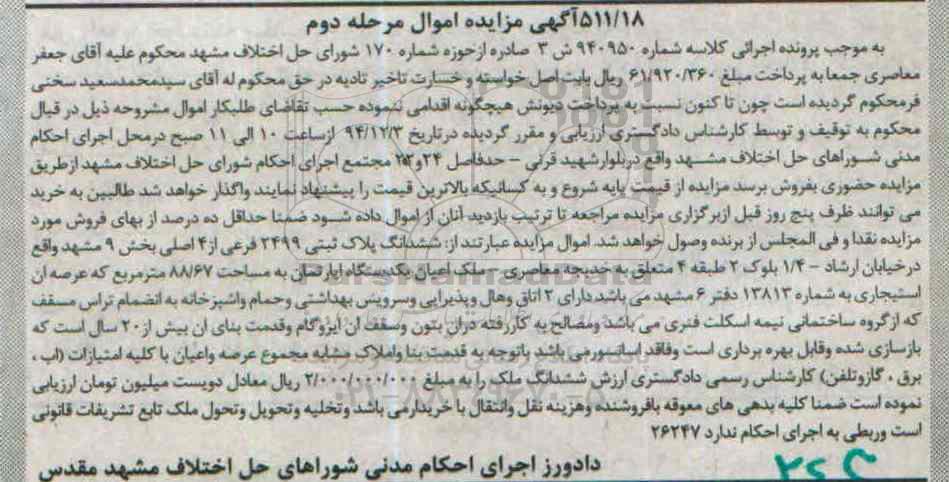 ۵۱۱/۱۸آگهی مزایده اموال مرحله دوم
به موجب پرونده اجرائی کلاسه شماره ۹۴۰۹۵۰ ش ۳ صادره ازحوزه شماره ۱۷۰ شورای حل اختلاف مشهد محکوم علیه آقای جعفر
معاصری جمعا به پرداخت مبلغ ۶۱/۹۲۰/۳۶۰ ریال بابت اصل خواسته و خسارت تاخیر تادیه در حق محکوم له آقای سیدمحمدسعید سخنی
فرمحکوم گردیده است چون تا کنون نسبت به پرداخت دیونش هیچگونه اقدامی ننموده حسب تقاضای طلبکار اموال مشروحه ذیل در قبال
محکوم به توقیف و توسط کارشناس دادگستری ارزیابی و مقرر گردیده درتاریخ ۹۴/۱۲/۳ ازساعت ۱۰ الی ۱۱ صبح درمحل اجرای احکام
مدنی شوراهای حل اختلاف مشهد واقع دربلوارشهید قرنی – حدفاصل ۲۴و۲۳ مجتمع اجرای احکام شورای حل اختلاف مشهد ازطریق
مزایده حضوری بفروش برسد مزایده از قیمت پایه شروع و به کسانیکه بالاترین قیمت را پیشنهاد نمایند واگذار خواهد شد طالبین به خرید
می توانند ظرف پنج روز قبل ازبرگزاری مزایده مراجعه تا ترتیب بازدید آنان از اموال داده شود ضمنا حداقل ده درصد از بهای فروش مورد
مزایده نقدا و فی المجلس از برنده وصول خواهد شد. اموال مزایده عبارتند از: ششدانگ پلاک ثبتی ۲۴۹۹ فرعی از۴ اصلی بخش ۹ مشهد واقع
درخیابان ارشاد – ۱/۴ بلوک ۲ طبقه ۴ متعلق به خدیجه معاصری – ملک اعیان یکدستگاه اپارتمان به مساحت ۸۸/۶۷ مترمربع که عرصه ان
استیجاری به شماره ۱۳۸۱۳ دفتر ۶ مشهد می باشد دارای ۲ اتاق وهال وپذیرایی وسرویس بهداشتی وحمام واشپزخانه به انضمام تراس مسقف
که ازگروه ساختمانی نیمه اسکلت فنری می باشد ومصالح به کاررفته دران بتون وسقف ان ایزوگام وقدمت بنای ان بیش از۲۰ سال است که
بازسازی شده وقابل بهره برداری است وفاقد اسانسورمی باشد باتوجه به قدمت بنا واملاک مشابه مجموع عرصه واعیان با کلیه امتیازات (اب ،
برق ، گازوتلفن) کارشناس رسمی دادگستری ارزش ششدانگ ملک را به مبلغ ۲/۰۰۰/۰۰۰/۰۰۰ ریال معادل دویست میلیون تومان ارزیابی
نموده است ضمنا کلیه بدهی های معوقه بافروشنده وهزینه نقل وانتقال با خریدارمی باشد وتخلیه وتحویل وتحول ملک تابع تشریفات قانونی
است وربطی به اجرای احکام ندارد ۲۶۲۴۷
دادورز اجرای احکام مدنی شوراهای حل اختلاف مشهد مقدس
ParsNamadData